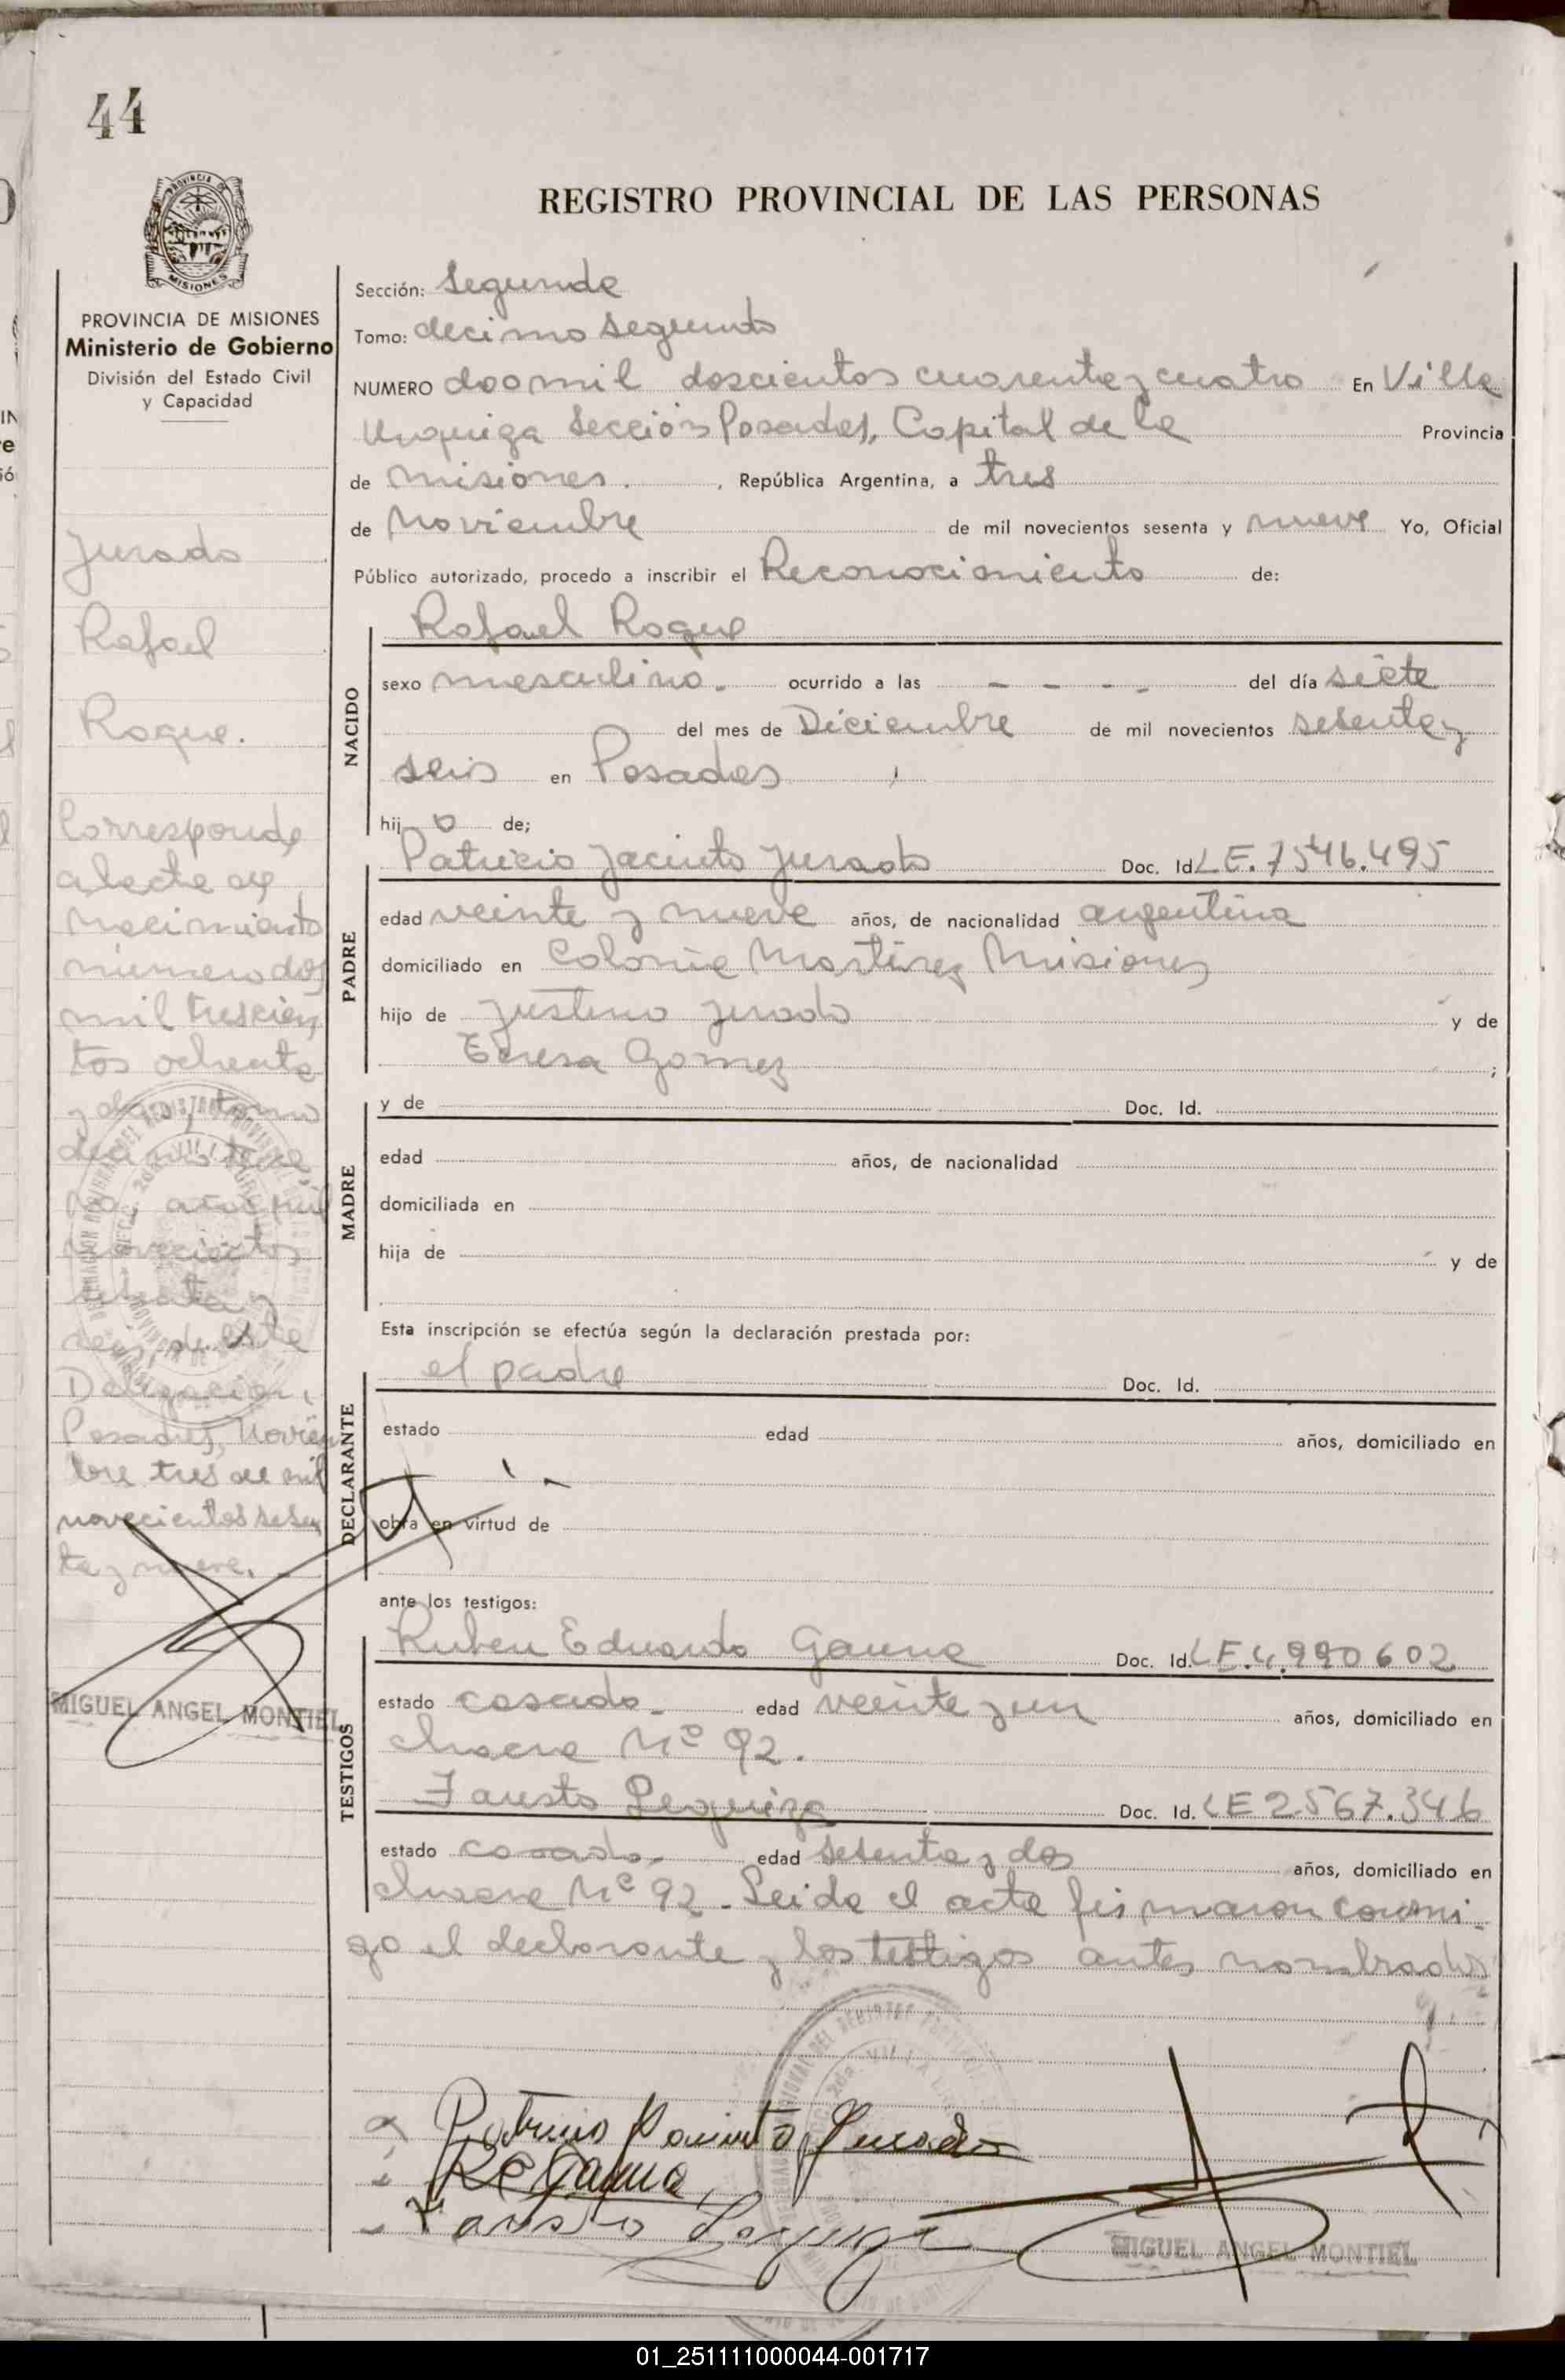 44
PROVINCIA DE
MISIONES
PROVINCIA DE MISIONES
Ministerio de Gobierno
División del Estado Civil
y Capacidad
Jurado
Rafael
Roque.
Corresponde
al acta de
nacimiento
número dos
mil trescien
tos ochenta
y dos, tomo
décimo
año mil
novecientos
sesenta y
seis, de esta
Delegación,
Posadas, Noviem
bre tres de mil
novecientos sesen
ta y nueve.
MIGUEL ANGEL MONTIEL
REGISTRO PROVINCIAL DE LAS PERSONAS
Sección: Segunda
Tomo: decimo segundo
NUMERO dos mil doscientos cuarenta y cuatro En Villa
Urquiza Sección Posadas, Capital de la Provincia
de Misiones. , República Argentina, a tres
de Noviembre de mil novecientos sesenta y nueve Yo, Oficial
Público autorizado, procedo a inscribir el Reconocimiento de:
NACIDO
Rafael Roque
sexo masculino. ocurrido a las - - - - del día siete
del mes de Diciembre de mil novecientos sesenta y
seis en Posadas
hij o de;
PADRE
Patricio Jacinto Jurado Doc. Id. LE. 7546.495
edad veinte y nueve años, de nacionalidad argentina
domiciliado en Colonia Martires Misiones
hijo de Justino Jurado y de
Teresa Gomez ;
MADRE
y de Doc. Id.
edad años, de nacionalidad
domiciliada en
hija de y de
Esta inscripción se efectúa según la declaración prestada por:
DECLARANTE
el padre Doc. Id.
estado edad años, domiciliado en
obra en virtud de
ante los testigos:
TESTIGOS
Ruben Eduardo Gauna Doc. Id. LE. 4.990602
estado casado. edad veinte y un años, domiciliado en
chacra Nº 92.
Fausto Leguiza Doc. Id. LE 2567.346
estado casado. edad setenta y dos años, domiciliado en
chacra Nº 92. Leida el acta firmaron conmi-
go el declarante y los testigos antes nombrados
Patricio Jacinto Jurado
RE Gauna
Fausto Leguiza
MIGUEL ANGEL MONTIEL
01_251111000044-001717